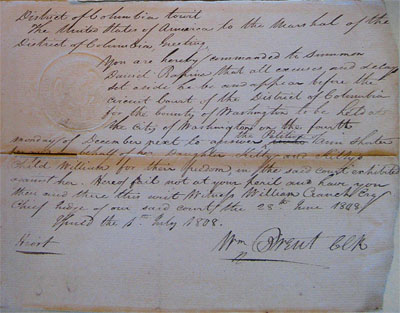 District of Columbia towit
The United States of America to the Marshal of the
District of Columbia Greeting.
You are hereby commanded to summon
Daniel that all excuses and delays
set aside he be and appear before the
circuit Court of the District of Columbia
for the County of Washington to be held at
the City of Washington on the fourth
the Petition
monday of December next to answer Shorter
in behalf of her and
child William for their freedom, in the said court exhibited
against him. Hereof fail not at your peril and have you
then and there this writ Witness William Cranch Esq
Chief Judge of our said court, the 28th June 1808
Issued the 1st July 1808.
Wm Brent Clk